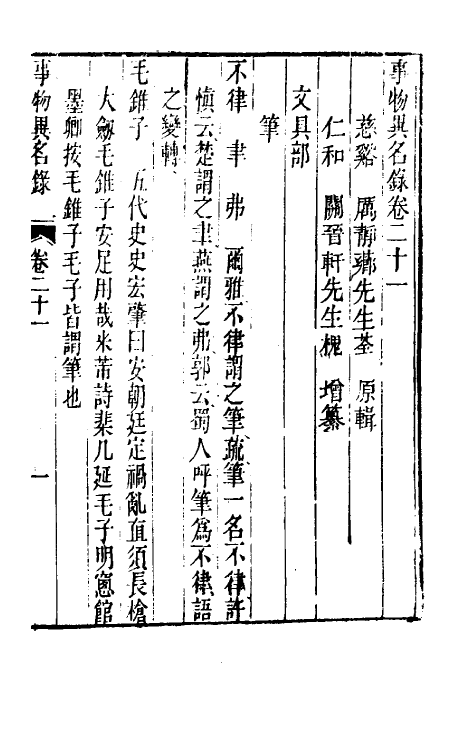 事物異名錄卷二十一
慈谿 厲靜薌先生荃 原輯
仁和 關晉軒先生槐 增纂
文具部
筆
不律 聿 弗 爾雅不律謂之筆疏筆一名不律許
愼云楚謂之聿燕謂之弗郭云蜀人呼筆爲不律語
之變轉
毛錐子 五代史史宏肇曰安朝廷定禍亂直須長槍
大劔毛錐子安足用哉米芾詩棐几延毛子明窻館
墨卿按毛錐子毛子皆謂筆也
事物異名錄 卷二十一 一